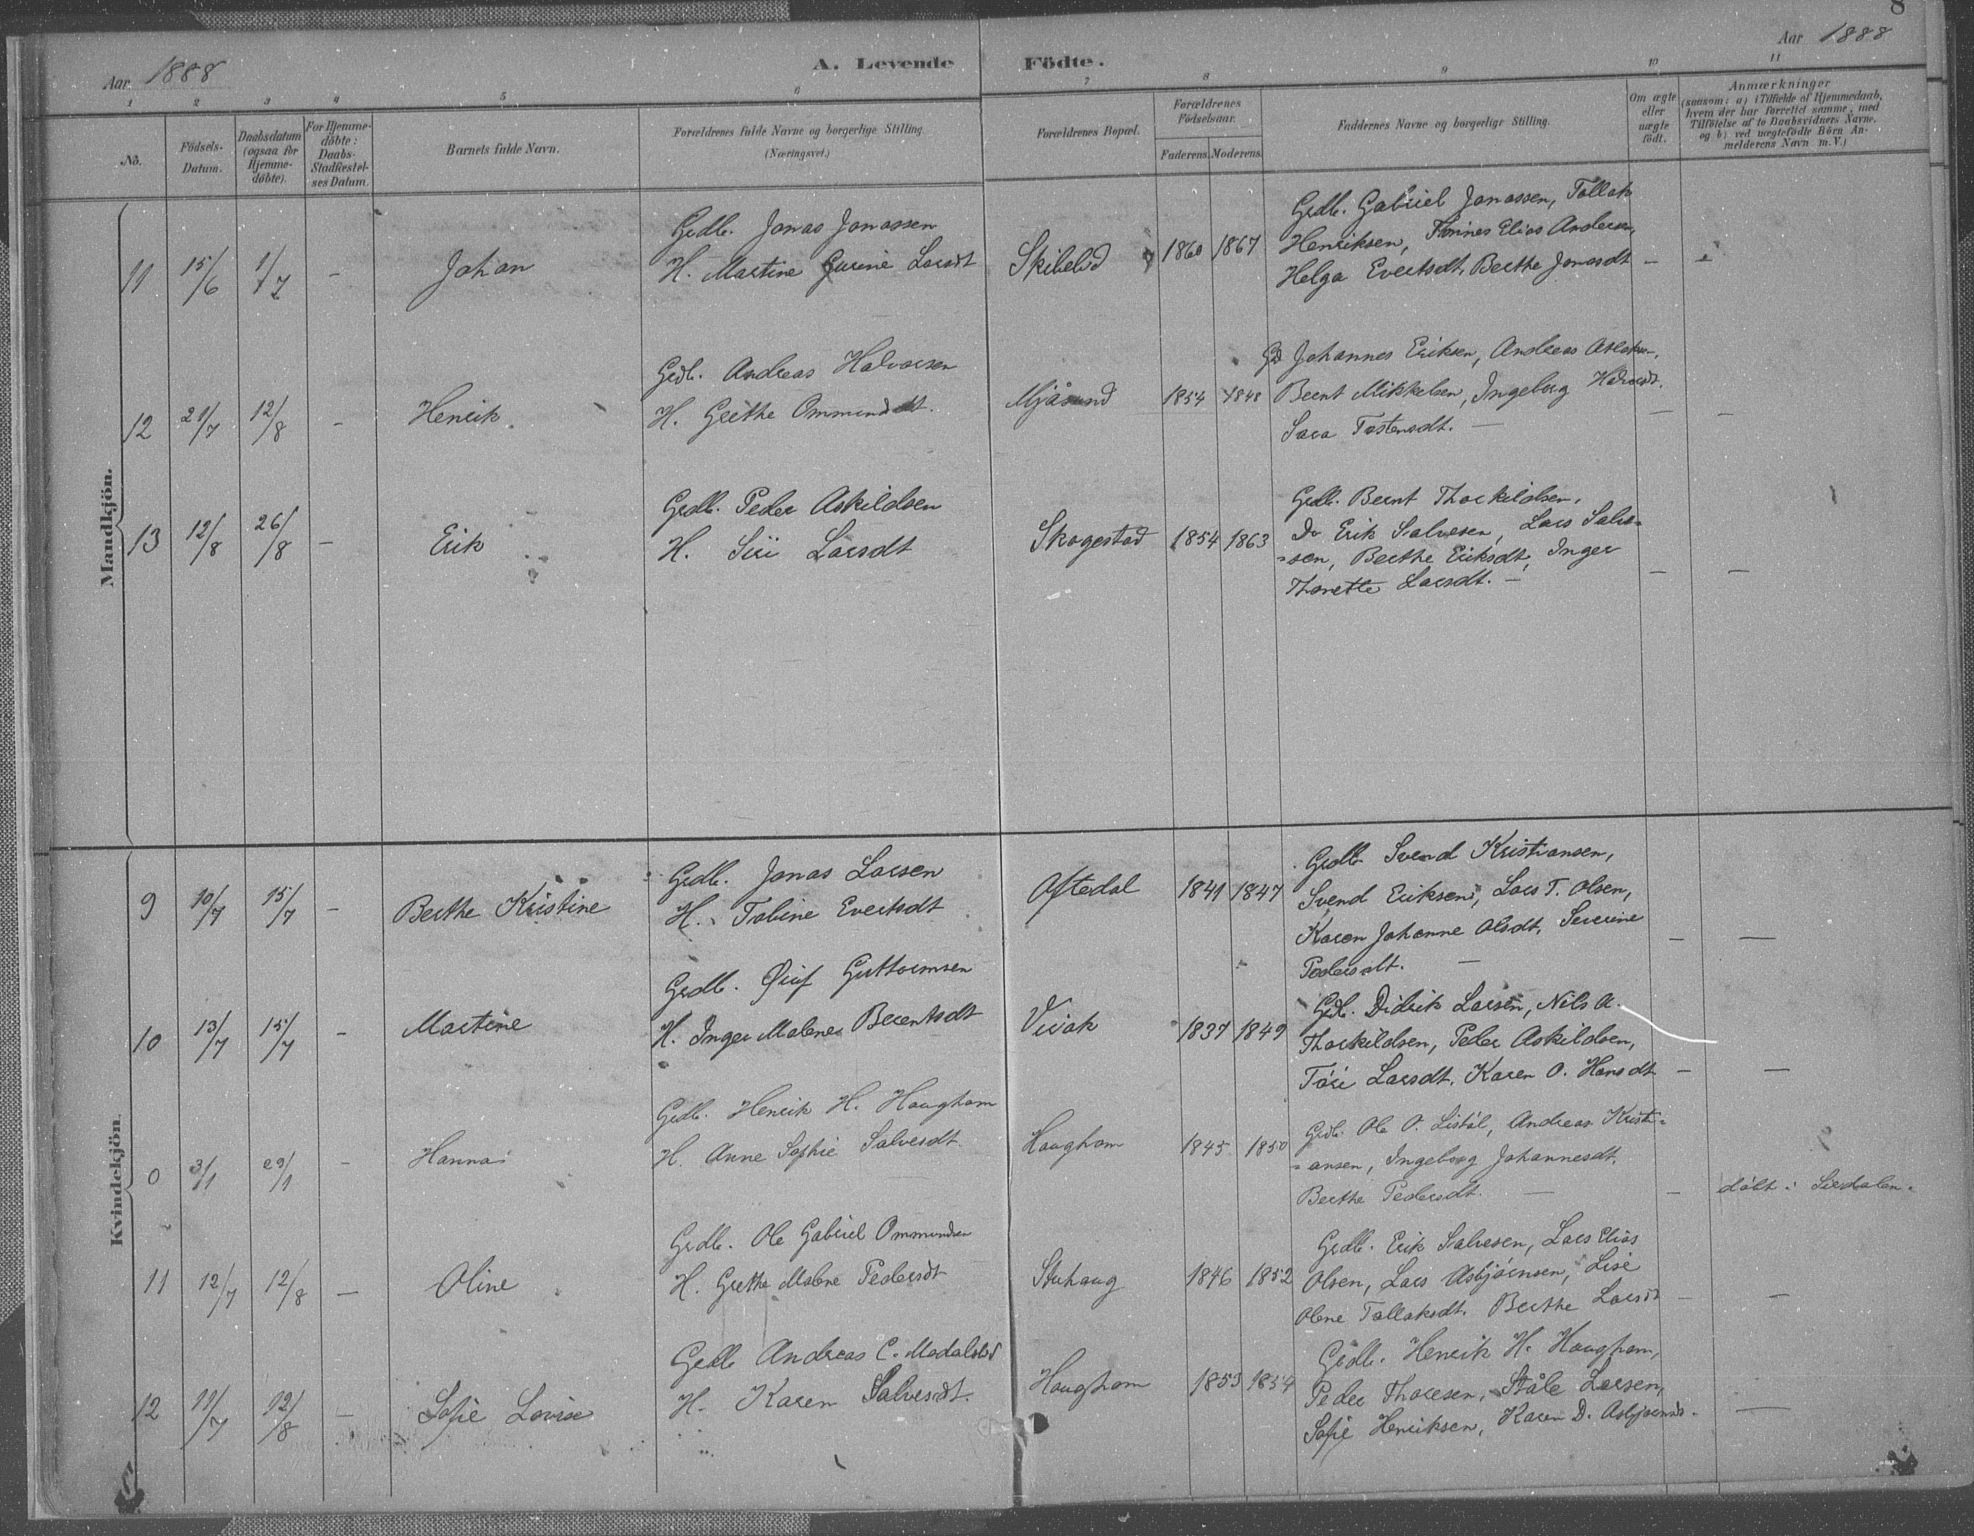 8
Aar 1888
A. Levende Födte.
Aar 1888
1 2 3 4 5 6 7 8 9 10 11
No.
Födsels-Datum.
Daabsdatum (ogsaa for Hjemme-döbte).
For Hjemme-döbte: Daabs-Stadfæstel-ses Datum.
Barnets fulde Navn.
Forældrenes fulde Navne og borgerlige Stilling.
(Næringsvei.)
Forældrenes Bopæl.
Forældrenes Födselsaar.
Faderens. Moderens.
Faddernes Navne og borgerlige Stilling.
Om ægte eller uægte födt.
Anmærkninger
(saasom: a) i Tilfælde af Hjemmedaab,
hvem der har forrettet samme, med
Tilföielse af to Daabsvidners Navne,
og b) ved uægtefödte Börn An-
melderens Navn m.V.)
Mandkjön.
11 15/6 1/7 – Johan
Grdb. Jonas Jonassen
H. Martine Gurine Larsdt
Skibeld 1860 1867
Grdb. Gabriel Jonassen, Tollak
Henriksen, Tønnes Elias Andersen,
Helga Evertsdt, Berthe Jonasdt –
12 21/7 12/8 – Henrik
Grdb. Andreas Halvorsen
H. Grethe Ommundsdt.
Mjåsund 1854 1848
Gd Johannes Eriksen, Andreas Aslaksen,
Bernt Mikkelsen, Ingeborg Halvorsdt.
Sara Tostensdt. – – –
13 12/8 26/8 – Erik
Grdb. Peder Askildsen
H. Siri Larsdt
Skogestad 1854 1863
Grdb. Bernt Thorkildsen,
Do Erik Salvesen, Lars Salve-
-sen, Berthe Eriksdt, Inger
Thonette Larsdt. – – –
Kvindekjön.
9 10/7 15/7 – Berthe Kristine
Grdb. Jonas Larsen
H. Tobine Evertsdt
Oftedal 1841 1847
Grdb Svend Kristiansen,
Svend Eriksen, Lars T. Olsen,
Karen Johanne Olsdt, Serine
Pedersdt. – – –
10 13/7 15/7 – Martine
Grdb. Guttormsen
H. Inger Malene Berentsdt
Virak 1837 1849
Grdb. Didrik Larsen, Nils A.
Thorkildsen, Peder Askildsen,
Larsdt, Karen O. Hansdt – –
0 3/1 29/1 – Hanna
Grdb. Henrik H. Haughom
H. Anne Sophie Salvesdt.
Haughom 1845 1850
Grdb. Ole O. Listøl, Andreas Kristi-
-ansen, Ingeborg Johannesdt,
Berthe Pedersdt. – –
døbt i Sirdalen.
11 12/7 12/8 – Oline
Grdb. Ole Gabriel Ommundsen
H. Grethe Malene Pedersdt
Stuhaug 1846 1852
Grdb. Erik Salvesen, Lars Elias
Olsen, Lars Asbjørnsen, Lise
Olene Tollaksdt. Berthe Larsdt – –
12 11/7 12/8 – Sofie Lovise
Grdb Andreas C. Modalsli
H. Karen Salvesdt.
Haughom 1853 1854
Grdb. Henrik H. Haughom,
Peder Thoresen, Ståle Larsen,
Sofie Henriksen, Karen D. Asbjørnsd. –